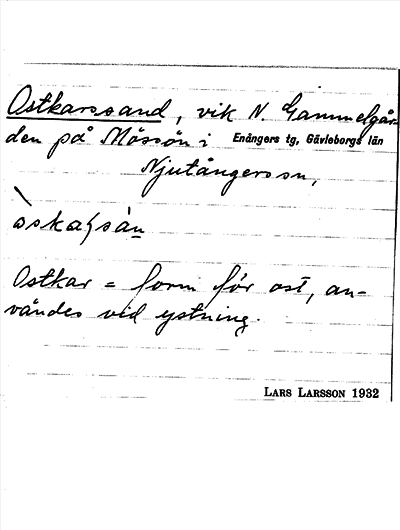 Ostkarssand, vik N. Gammelgår-
den på Mössön i Enångers tg, Gävleborgs län
Njutångers sn,
Ostkar = form för ost, an-
vändes vid ystning.
LARS LARSSON 1932